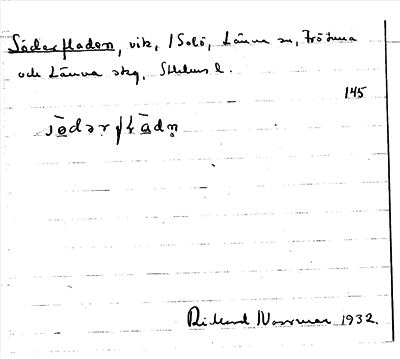 Söderfladen, vik, i Solö, Länna sn, Frötuna
och Länna skg, Sthlms l.
145
södərfładn̥
Rikard Norrman 1932.